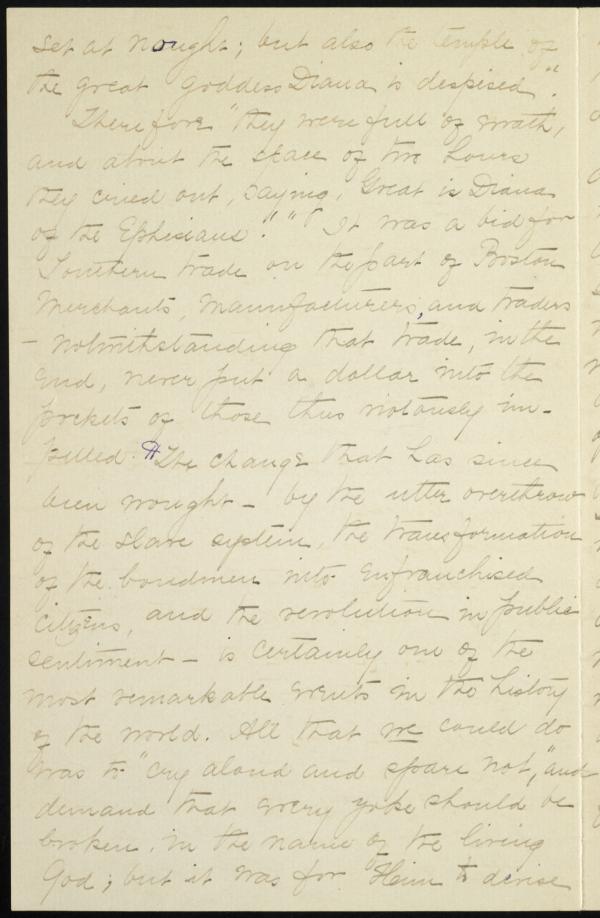 set at nought; but also the temple of
the great goddess Diana is despised."
Therefore "they were full of wrath,
and about the space of two hours
they cried out, saying, Great is Diana
of the Ephesians." " It was a bid for
Southern trade on the part of Boston
merchants, manufacturers, and traders
– notwithstanding that trade, in the
end, never put a dollar into the
pockets of those thus riotously im-
pelled. ¶ The change that has since
been wrought – by the utter overthrow
of the slave system, the transformation
of the bondmen into enfranchised
citizens, and the revolution in public
sentiment – is certainly one of the
most remarkable events in the history
of the world. All that we could do
was to "cry aloud and spare not," and
demand that every yoke should be
broken in the name of the living
God; but it was for Him to devise